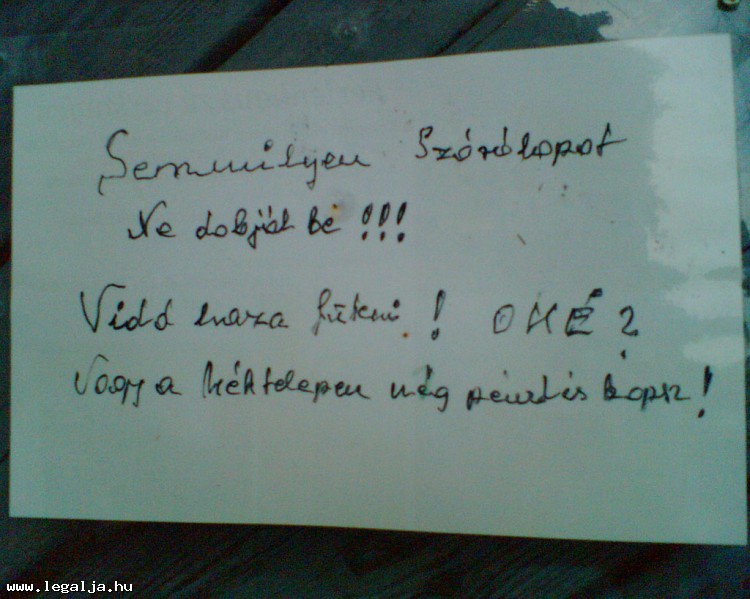 Semmilyen Szórólapot
Ne dobját be !!!
Vidd haza fűteni ! OKÉ?
Vagy a Méhtelepen még pénzt is kapsz!
www.legalja.hu